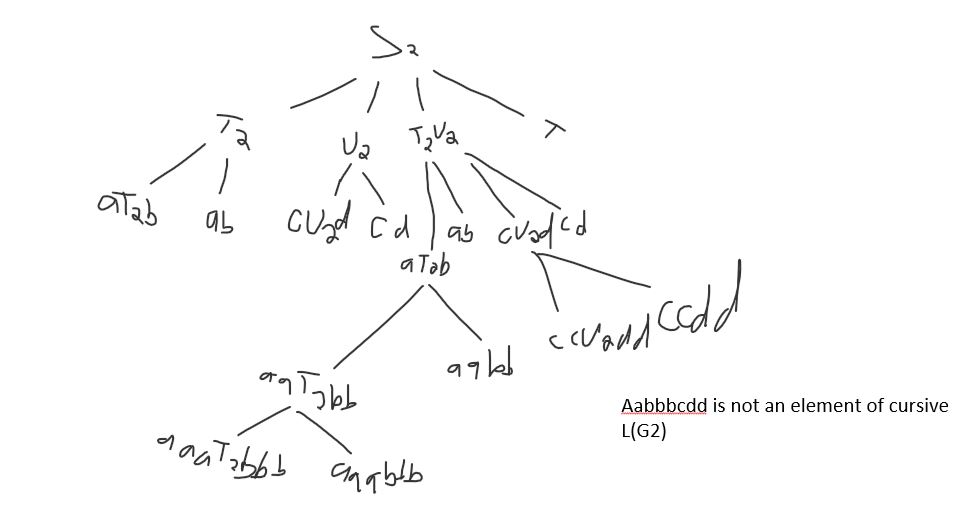 S2
T2 U2 T2U2 T
aT2b ab cU2d cd ab cU2d cd
aT2b
ccU2dd ccdd
aaT2bb aabb
aaaT2bbb aaabbb
Aabbbcdd is not an element of cursive
L(G2)